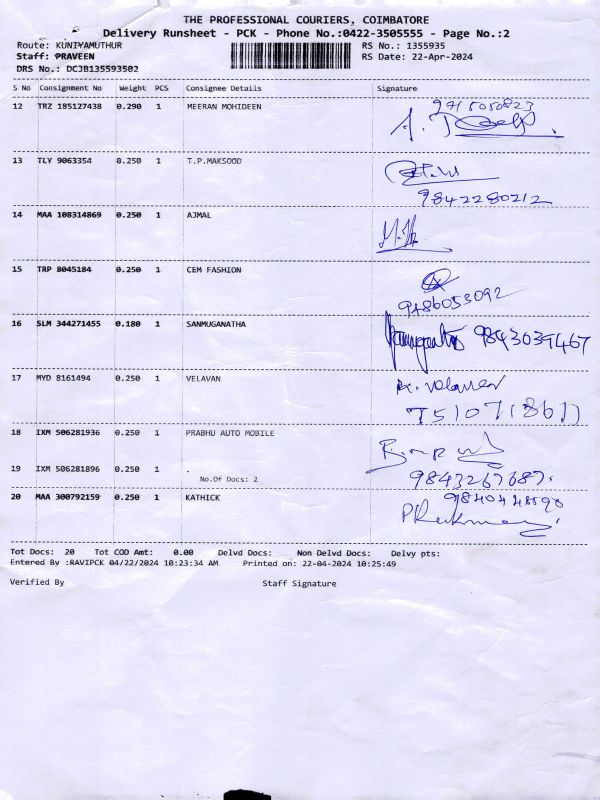 THE PROFESSIONAL COURIERS, COIMBATORE
Delivery Runsheet - PCK - Phone No.:0422-3505555 - Page No.:2
Route: KUNIYAMUTHUR RS No.: 1355935
Staff: PRAVEEN RS Date: 22-Apr-2024
DRS No.: DCJB135593502
S No Consignment No Weight PCS Consignee Details Signature
12 TRZ 185127438 0.290 1 MEERAN MOHIDEEN
13 TLY 9063354 0.250 1 T.P.MAKSOOD
9842280212
14 MAA 108314869 0.250 1 AJMAL
15 TRP 8045184 0.250 1 CEM FASHION
9486053092
16 SLM 344271455 0.180 1 SANMUGANATHA
17 MYD 8161494 0.250 1 VELAVAN K. Velavan
18 IXM 506281936 0.250 1 PRABHU AUTO MOBILE
19 IXM 506281896 0.250 1 .
No.Of Docs: 2
9843267687.
20 MAA 300792159 0.250 1 KATHICK
Tot Docs: 20 Tot COD Amt: 0.00 Delvd Docs: Non Delvd Docs: Delvy pts:
Entered By :RAVIPCK 04/22/2024 10:23:34 AM Printed on: 22-04-2024 10:25:49
Verified By Staff Signature